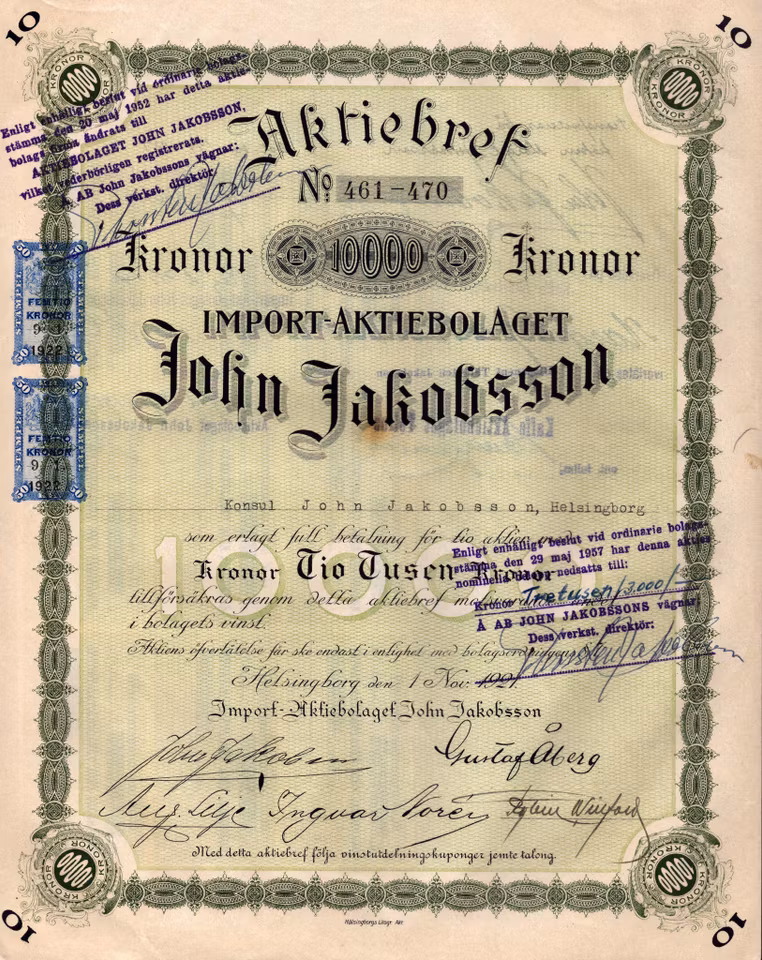 10
10
KRONOR
KRONOR
10000
10000
KRONOR
KRONOR
Enligt enhälligt beslut vid ordinarie bolags-
stämma den 20 maj 1952 har detta aktie-
bolags firma ändrats till
AKTIEBOLAGET JOHN JAKOBSSON,
vilket vederbörligen registrerats.
Å AB John Jakobssons vägnar:
Dess verkst. direktör
Aktiebref
No 461-470
Kronor 10000 Kronor
IMPORT-AKTIEBOLAGET
John Jakobsson
50 50
STÄMPEL
FEMTIO
KRONOR
9
1922
50 50
STÄMPEL
FEMTIO
KRONOR
9
1922
Konsul John Jakobsson, Helsingborg
som erlagt full betalning för tio aktier
10000
Kronor Tio Tusen Kronor
tillförsäkras genom detta aktiebref
i bolagets vinst.
Aktiens öfverlåtelse får ske endast i enlighet med bolagsordningen
Enligt enhälligt beslut vid ordinarie bolags-
stämma den 29 maj 1957 har denna akties
nominella nedsatts till:
Kronor Tretusen/3.000/-
Å AB JOHN JAKOBSSONS vägnar:
Dess verkst. direktör:
Helsingborg den 1 Nov. 1921.
Import-Aktiebolaget John Jakobsson
John Jakobsson
Gustaf Åberg
Aug. Lilje Ingvar Norén
Med detta aktiebref följa vinstutdelningskuponger jemte talong.
KRONOR
KRONOR
10000
10000
10
10
Hälsingborgs Litogr. Akt